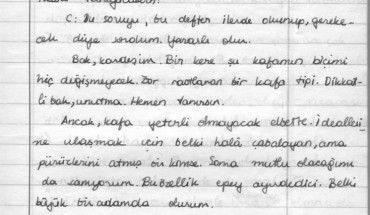 C: Bu soruyu, bu defter ilerde okunup, gereke-
cek diye sordum. Yararlı olur.
Bak, kardeşim. Bir kere şu kafamın biçimi
hiç değişmeyecek. Zor rastlanan bir kafa tipi. Dikkat-
li bak, unutma. Hemen tanırsın.
Ancak, kafa yeterli olmayacak elbette. İdealleri-
ne ulaşmak için belki hâlâ çabalayan, ama
pürüzlerini atmış bir kimse. Sonra mutlu olacağımı
da sanıyorum. Bu özellik epey ayırdedici. Belki
büyük bir adam da olurum.